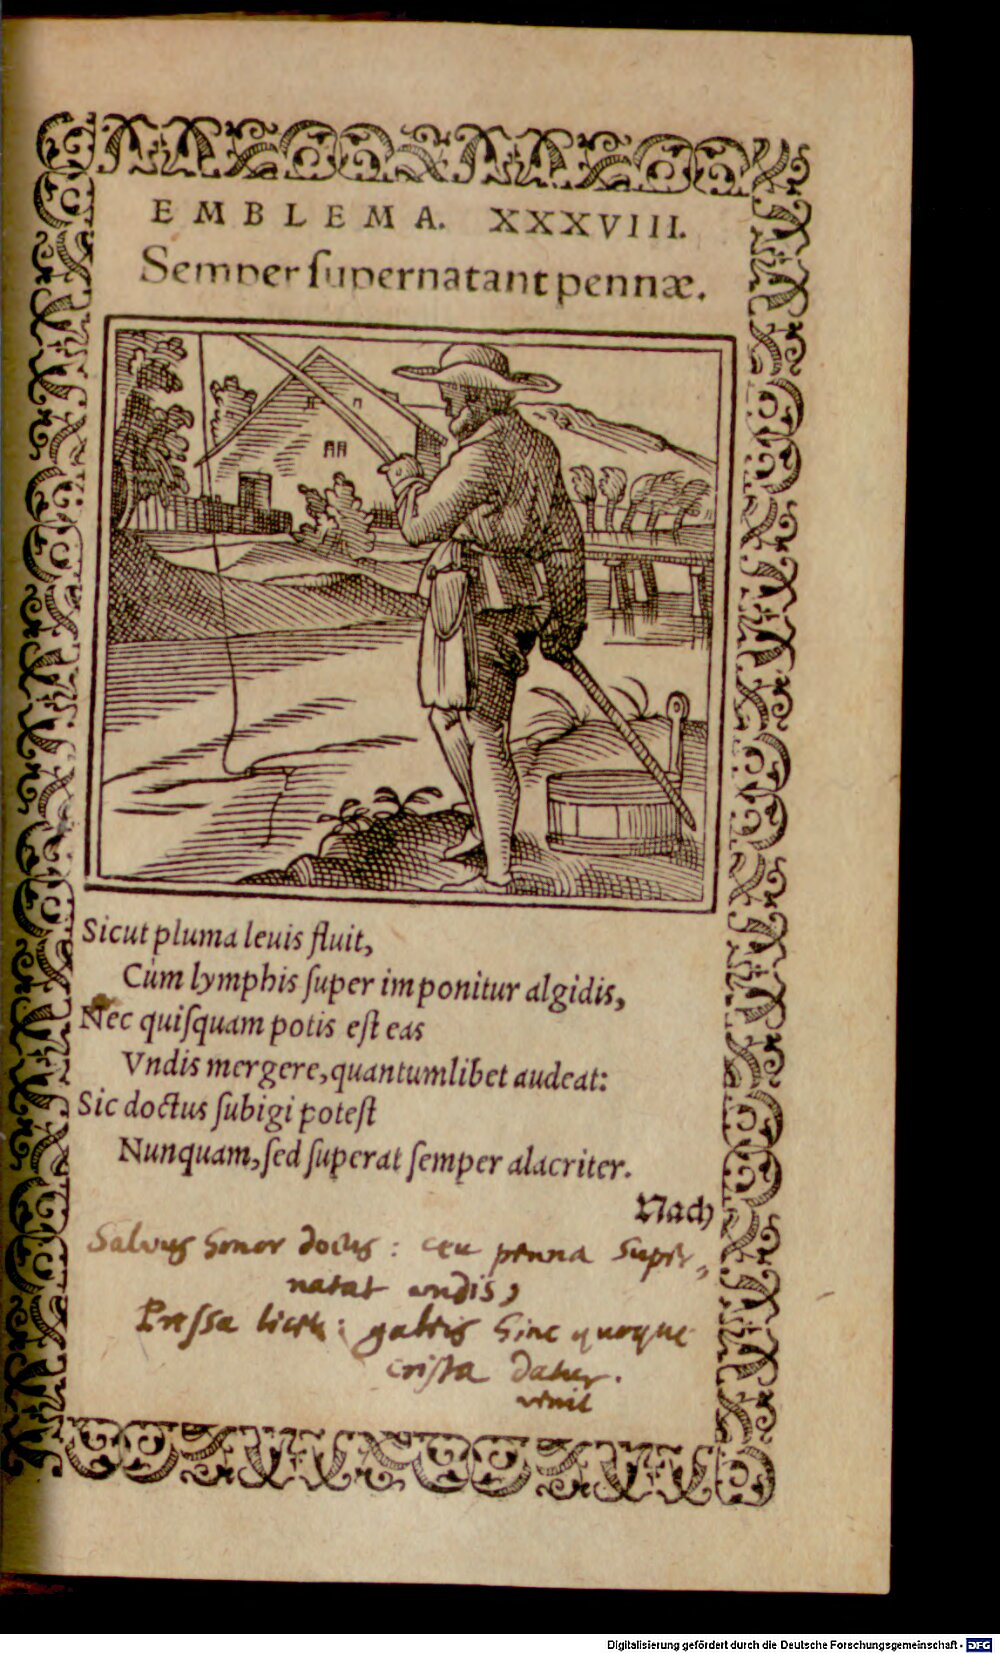 EMBLEMA. XXXVIII.
Semper ſupernatant pennæ.
Sicut pluma leuis fluit,
Cùm lymphis ſuper imponitur algidis,
Nec quiſquam potis eſt eas
Vndis mergere, quantumlibet audeat:
Sic doctus ſubigi poteſt
Nunquam, ſed ſuperat ſemper alacriter.
Nach
Salvus honor doctis: ceu penna super-
natat undis,
Pressa licet: galeis hinc quoque
crista datur.
venit
Digitalisierung gefördert durch die Deutsche Forschungsgemeinschaft - DFG